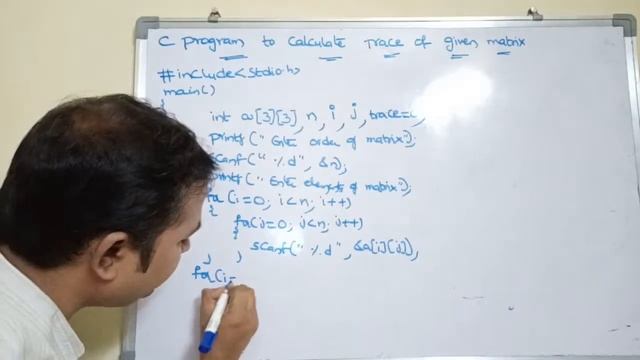 C program to calculate Trace of given matrix
#include<stdio.h>
main()
{
int a[3][3], n, i, j, trace=0;
printf("Enter order of matrix");
scanf("%d", &n);
printf("Enter elements of matrix");
for(i=0; i<n; i++)
{
for(j=0; j<n; j++)
{
scanf("%d", &a[i][j]);
} }
for(i=